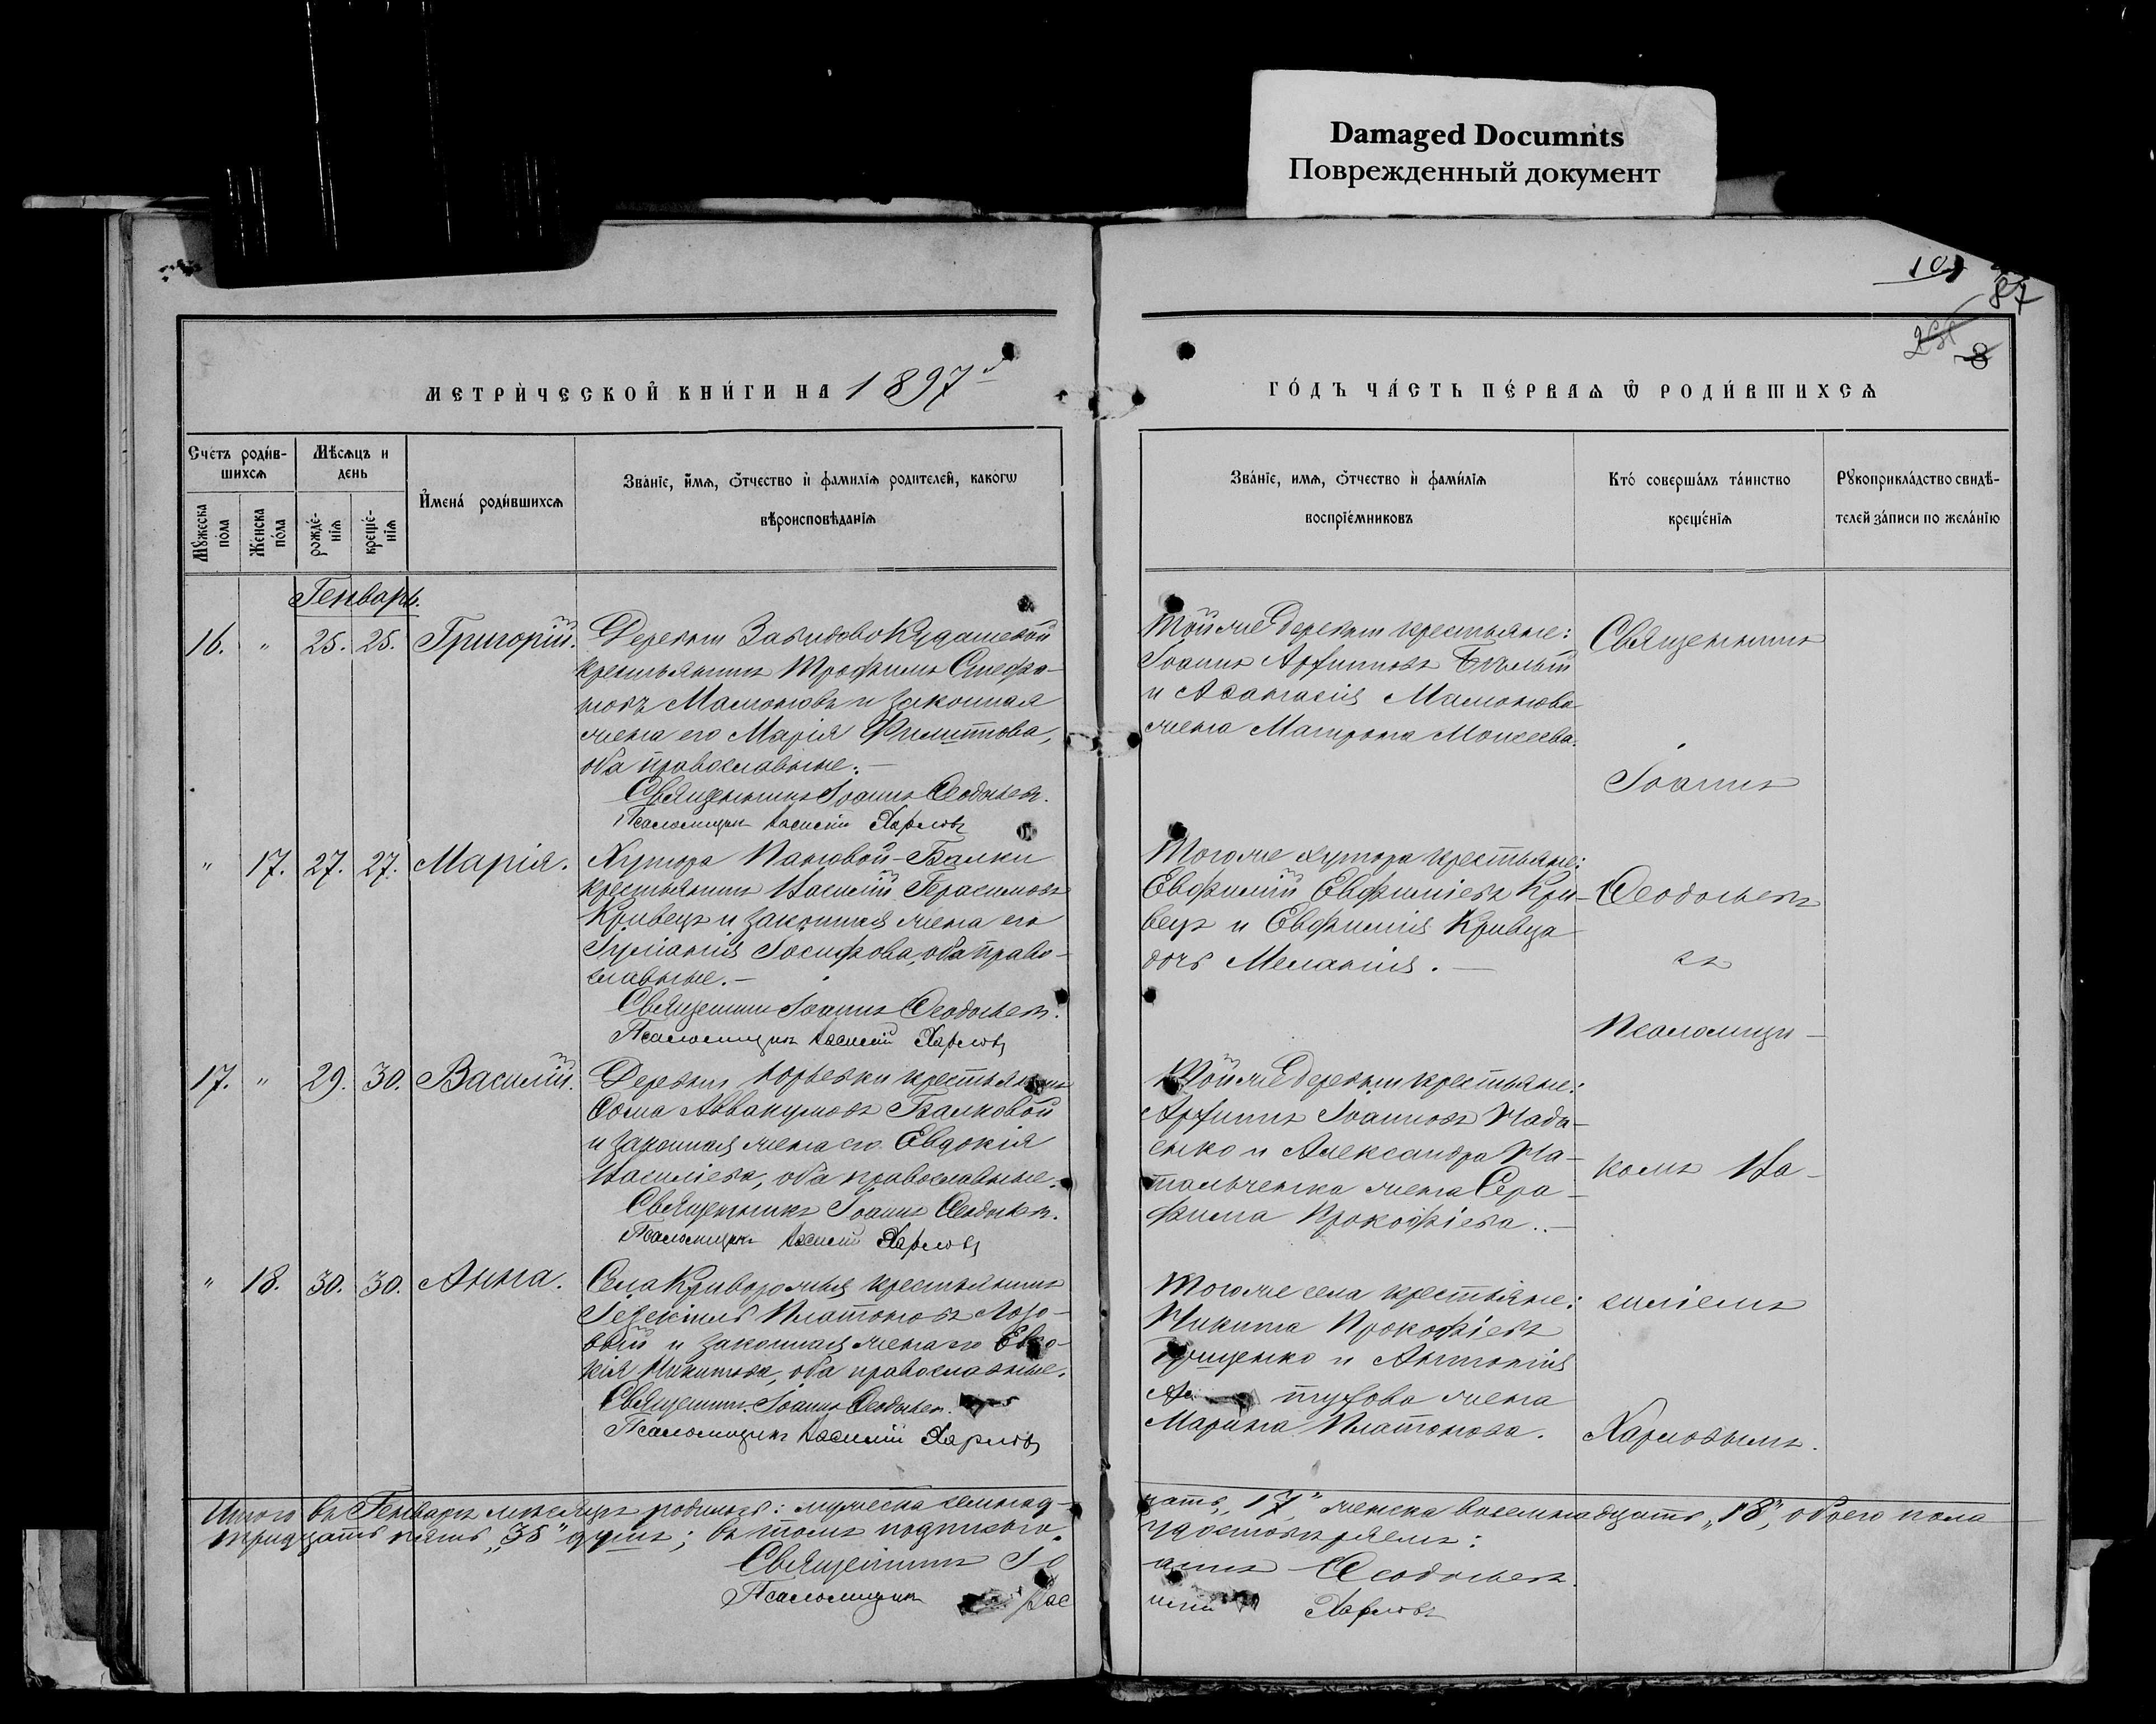 Damaged Documnts
Поврежденный документ
109
87
8
МЕТРИ́ЧЕСКОЙ КНИ́ГИ НА 1897й
ГО́ДЪ ЧА́СТЬ ПЕ́РВАѦ Ѡ҆ РОДИ́ВШИХСѦ
Сче́тъ роди́в-
шихсѧ
Мѣ́сѧцъ и
день
И҆мена́ роди́вшихсѧ
Зва́нїе, и҆́мѧ, ѻ҆́тчество и҆ фами́лїѧ роди́телей, како́гѡ
вѣроисповѣ́данїѧ
Мꙋ́жеска
по́ла
Же́нска
по́ла
рожде́-
нїѧ
креще́-
нїѧ
Зва́нїе, имѧ, ѻ҆́тчество и҆ фами́лїѧ
воспрїе́мниковъ
Кто́ соверша́лъ та́инство
креще́нїѧ
Рꙋкоприкла́дство свидѣ́-
телей за́писи по жела́нїю
Генварь.
16. " 25. 25. Григорій.
Деревни Завидово Кудашевой
крестьянинъ Трофимъ Стефа-
новъ Мамоновъ и законная
жена его Марія Филиппова,
оба православные.
Священникъ Іоаннъ Ѳеодосьевъ.
Псаломщикъ Василій Харловъ
Тойже деревни крестьяне:
Іоаннъ Архиповъ Бѣлый
и Аѳанасія Мамонова
жена Матрона Моисеева.
" 17. 27. 27. Марія.
Хутора Пановой-Балки
крестьянинъ Василій Герасимовъ
Кривецъ и законная жена его
Іуліанія Іосифова, оба право-
славные.
Священникъ Іоаннъ Ѳеодосьевъ.
Псаломщикъ Василій Харловъ
Тогоже хутора крестьяне:
Евфимій Евфиміевъ Кри-
вецъ и Евфимія Кривца
дочь Меланія.
17. " 29. 30. Василій.
Деревни Юрьевки крестьянинъ
Ѳома Аввакумовъ Балковой
и законная жена его Евдокія
Василіева, оба православные.
Священникъ Іоаннъ Ѳеодосьевъ.
Псаломщикъ Василій Харловъ
Тойже деревни крестьяне:
Архипъ Іоанновъ
енко и Александра На-
тальченка жена Сера-
фима Прокофіева.
" 18. 30. 30. Анна.
Села Криворожья крестьянинъ
Іезекіиль Платоновъ Лозо-
вый и законная жена его Евдо-
кія Никитова, оба православные.
Священникъ Іоаннъ Ѳеодосьевъ.
Псаломщикъ Василій Харловъ
Тогоже села крестьяне:
Никита Прокофіевъ
Грищенко и Антонія
жена
Марина Платонова.
Священникъ
Іоаннъ
Ѳеодосьевъ
съ
Псаломщи-
комъ Ва-
силіемъ
Харловымъ.
Итого въ Генварѣ мѣсяцѣ родилось: мужеска семнад-
цать „17", женска восемнадцать „18", обоего пола
тридцать пять „35" душъ; въ томъ подписом
удостовѣряемъ:
Священникъ Іо
аннъ Ѳеодосьевъ.
Псаломщикъ Вас
илій Харловъ